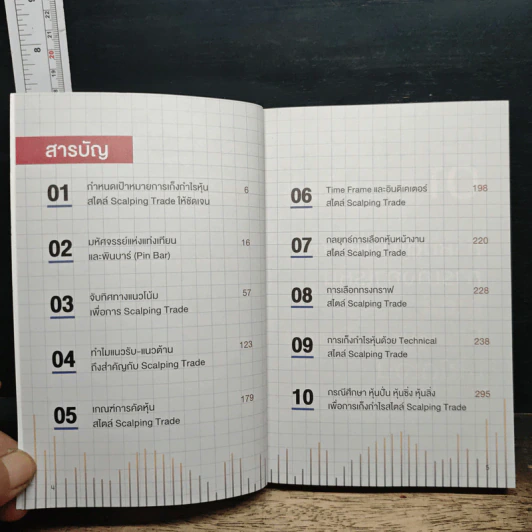 สารบัญ
01 กำหนดเป้าหมายการเก็งกำไรหุ้น 6
สไตล์ Scalping Trade ให้ชัดเจน
02 มหัศจรรย์แห่งแท่งเทียน 16
และพินบาร์ (Pin Bar)
03 จับทิศทางแนวโน้ม 57
เพื่อการ Scalping Trade
04 ทำไมแนวรับ-แนวต้าน 123
ถึงสำคัญกับ Scalping Trade
05 เกณฑ์การคัดหุ้น 179
สไตล์ Scalping Trade
4
06 Time Frame และอินดิเคเตอร์ 198
สไตล์ Scalping Trade
07 กลยุทธ์การเลือกหุ้นหน้างาน 220
สไตล์ Scalping Trade
08 การเลือกทรงกราฟ 228
สไตล์ Scalping Trade
09 การเก็งกำไรหุ้นด้วย Technical 238
สไตล์ Scalping Trade
10 กรณีศึกษา หุ้นปั่น หุ้นซิ่ง หุ้นลิ่ง 295
เพื่อการเก็งกำไรสไตล์ Scalping Trade
5